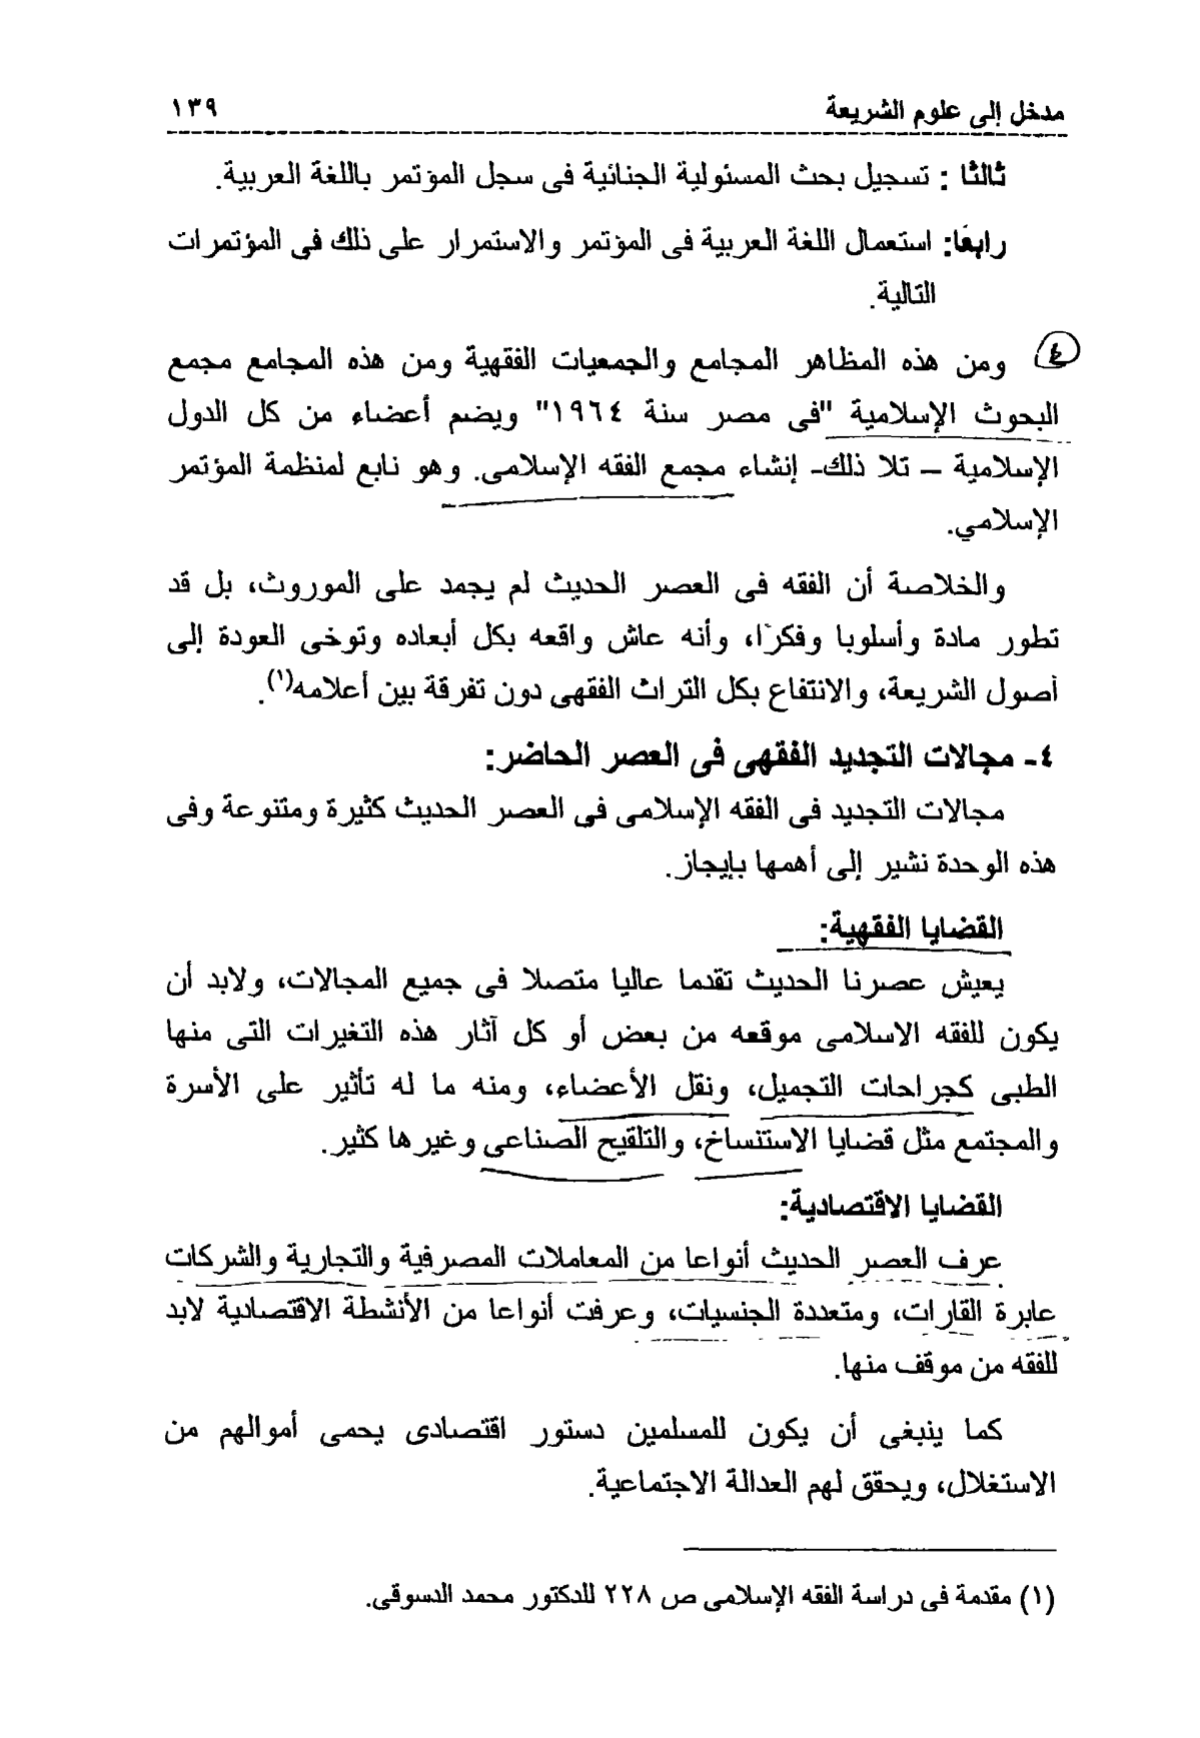 مدخل إلى علوم الشريعة ١٣٩
ثالثا : تسجيل بحث المسئولية الجنائية فى سجل المؤتمر باللغة العربية.
رابعًا: استعمال اللغة العربية فى المؤتمر والاستمرار على ذلك فى المؤتمرات
التالية.
٤ ومن هذه المظاهر المجامع والجمعيات الفقهية ومن هذه المجامع مجمع
البحوث الإسلامية "فى مصر سنة ١٩٦٤" ويضم أعضاء من كل الدول
الإسلامية – تلا ذلك- إنشاء مجمع الفقه الإسلامى. وهو نابع لمنظمة المؤتمر
الإسلامي.
والخلاصة أن الفقه فى العصر الحديث لم يجمد على الموروث، بل قد
تطور مادة وأسلوبا وفكرًا، وأنه عاش واقعه بكل أبعاده وتوخى العودة إلى
أصول الشريعة، والانتفاع بكل التراث الفقهى دون تفرقة بين أعلامه(١).
٤- مجالات التجديد الفقهى فى العصر الحاضر:
مجالات التجديد فى الفقه الإسلامى في العصر الحديث كثيرة ومتنوعة وفى
هذه الوحدة نشير إلى أهمها بإيجاز.
القضايا الفقهية:
يعيش عصرنا الحديث تقدما عاليا متصلا فى جميع المجالات، ولابد أن
يكون للفقه الاسلامى موقعه من بعض أو كل آثار هذه التغيرات التى منها
الطبى كجراحات التجميل، ونقل الأعضاء، ومنه ما له تأثير على الأسرة
والمجتمع مثل قضايا الاستنساخ، والتلقيح الصناعى وغيرها كثير.
القضايا الاقتصادية:
عرف العصر الحديث أنواعا من المعاملات المصرفية والتجارية والشركات
عابرة القارات، ومتعددة الجنسيات، وعرفت أنواعا من الأنشطة الاقتصادية لابد
للفقه من موقف منها.
كما ينبغى أن يكون للمسلمين دستور اقتصادى يحمى أموالهم من
الاستغلال، ويحقق لهم العدالة الاجتماعية.
(١) مقدمة فى دراسة الفقه الإسلامى ص ٢٢٨ للدكتور محمد الدسوقى.